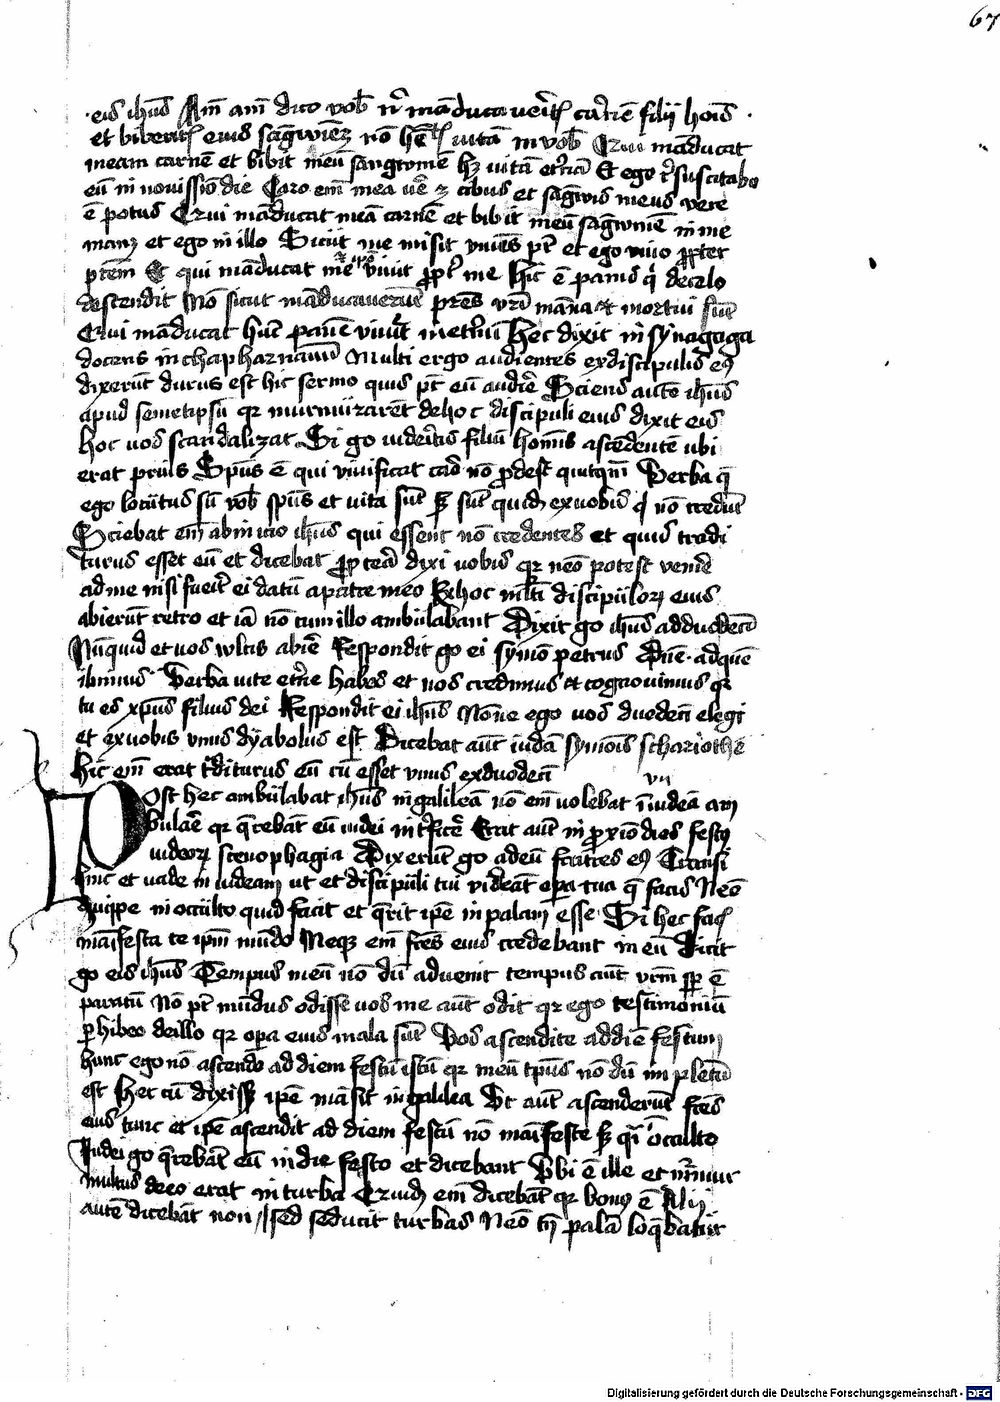 67
eis ih̄us Am̄ am̄ dico vob̄ nͥ māducaveritis carnē filij hoīs
et biberitis eius sāgwinē nō hītis vitā in vob̄ Qui māducat
meam carnē et bibit meū sangwinē hꝫ vitā et͛nā Et ego r͛suscitabo
eū in novissīo die Caro em̄ mea ue͛ ē cibus et sāgwis meus vere
ē potus Qui māducat meā carnē et bibit meū sāgwinē in me
manꝫ et ego in illo Sicut me misit vivēs pr̄ et ego vivo ꝓpter
pr̄em Et qui māducat me vivit ꝓpt͛ me Hic ē panis qͥ de celo
descendit Nō sicut māducaverūt pr̄es vr̄i manna et mortui sūt
Qui māducat hūc panē vivit in et͛nū Hec dixit in synagoga
docens in chapharnaum Multi ergo audientes ex discipulis eꝰ
dixerūt durus est hic sermo quis pt̄ eū audire Sciens autē ih̄us
apud semetipsū qꝛ murmurarēt de hoc discipuli eius dixit eis
hoc uos scandalizat Si g͛o videritis filiū hominis ascēdentē ubi
erat prius Sp̄us ē qui vivificat caro nō ꝓdest quitqm̄ Verba q̄
ego locutus sū vob̄ sp̄us et vita sūt sꝫ sūt quidā ex vobis qͥ nō credūt
Sciebat em̄ ab inicio ih̄us qui essent nō credentes et quis tradi
turus esset eū et dicebat ꝓpt͛ea dixi vobis qꝛ nēo potest venire
ad me nisi fu͛it ei datū a patre meo Ex hoc ml̄ti discipulorꝫ eius
abierūt retro et iā nō cum illo ambulabant Dixit g͛o ih̄us ad duodecī
Nūquid et vos wltis abire Respondit g͛o ei symō petrus Dn̄e ad quē
ibimus Verba vite et͛ne habes et nos credimus et cognovimus qꝛ
tu es xp̄us filius dei Respondit ei ih̄us Nōne ego vos duodecī elegi
et ex vobis vnus dyabolus est Dicebat aut̄ iudā symōis schariothē
hic em̄ erat t͛diturus eū cū esset vnus ex duodecī
vij
Post hec ambulabat ih̄us in galileā nō em̄ volebat ī iudeā am
bulare qꝛ q̄rebāt eū iudei int͛fic͛e Erat aut̄ in ꝓxīo dies festꝰ
iudeorꝫ scenophagia Dixerūt g͛o ad eū fratres eꝰ Transi
hinc et vade in iudeam ut et discipuli tui videāt op̄a tua q̄ facis Nēo
quipe in occulto quid facit et q̄rit ip̄e in palam esse Si hec facis
māifesta te ip̄m mūdo Neqꝫ em̄ fr̄es eius credebant in eū Dicit
g͛o eis ih̄us Tempus meū nō dū advenit tempus aut̄ vr̄m sꝑ ē
paratū Nō pt̄ mūdus odisse vos me aut̄ odit qꝛ ego testimoniū
ꝑhibeo de illo qꝛ op̄a eius mala sūt Vos ascendite ad diē festum
hunc ego nō ascendo ad diem festū istū qꝛ meū tp̄us nō dū impletū
est Hec cū dixisset ip̄e māsit in galilea Ut aut̄ ascenderūt fr̄es
eius tunc et ip̄e ascendit ad diem festū nō māifeste sꝫ qͥ ī occulto
Iudei g͛o q̄rebāt eū in die festo et dicebant Vbi ē ille et mr̄mur
multus de eo erat in turba Quidā em̄ dicebāt qꝛ bonꝰ ē Alij
autē dicebāt non sed seducit turbas Nēo tn̄ palā loq̄batur
Digitalisierung gefördert durch die Deutsche Forschungsgemeinschaft - DFG